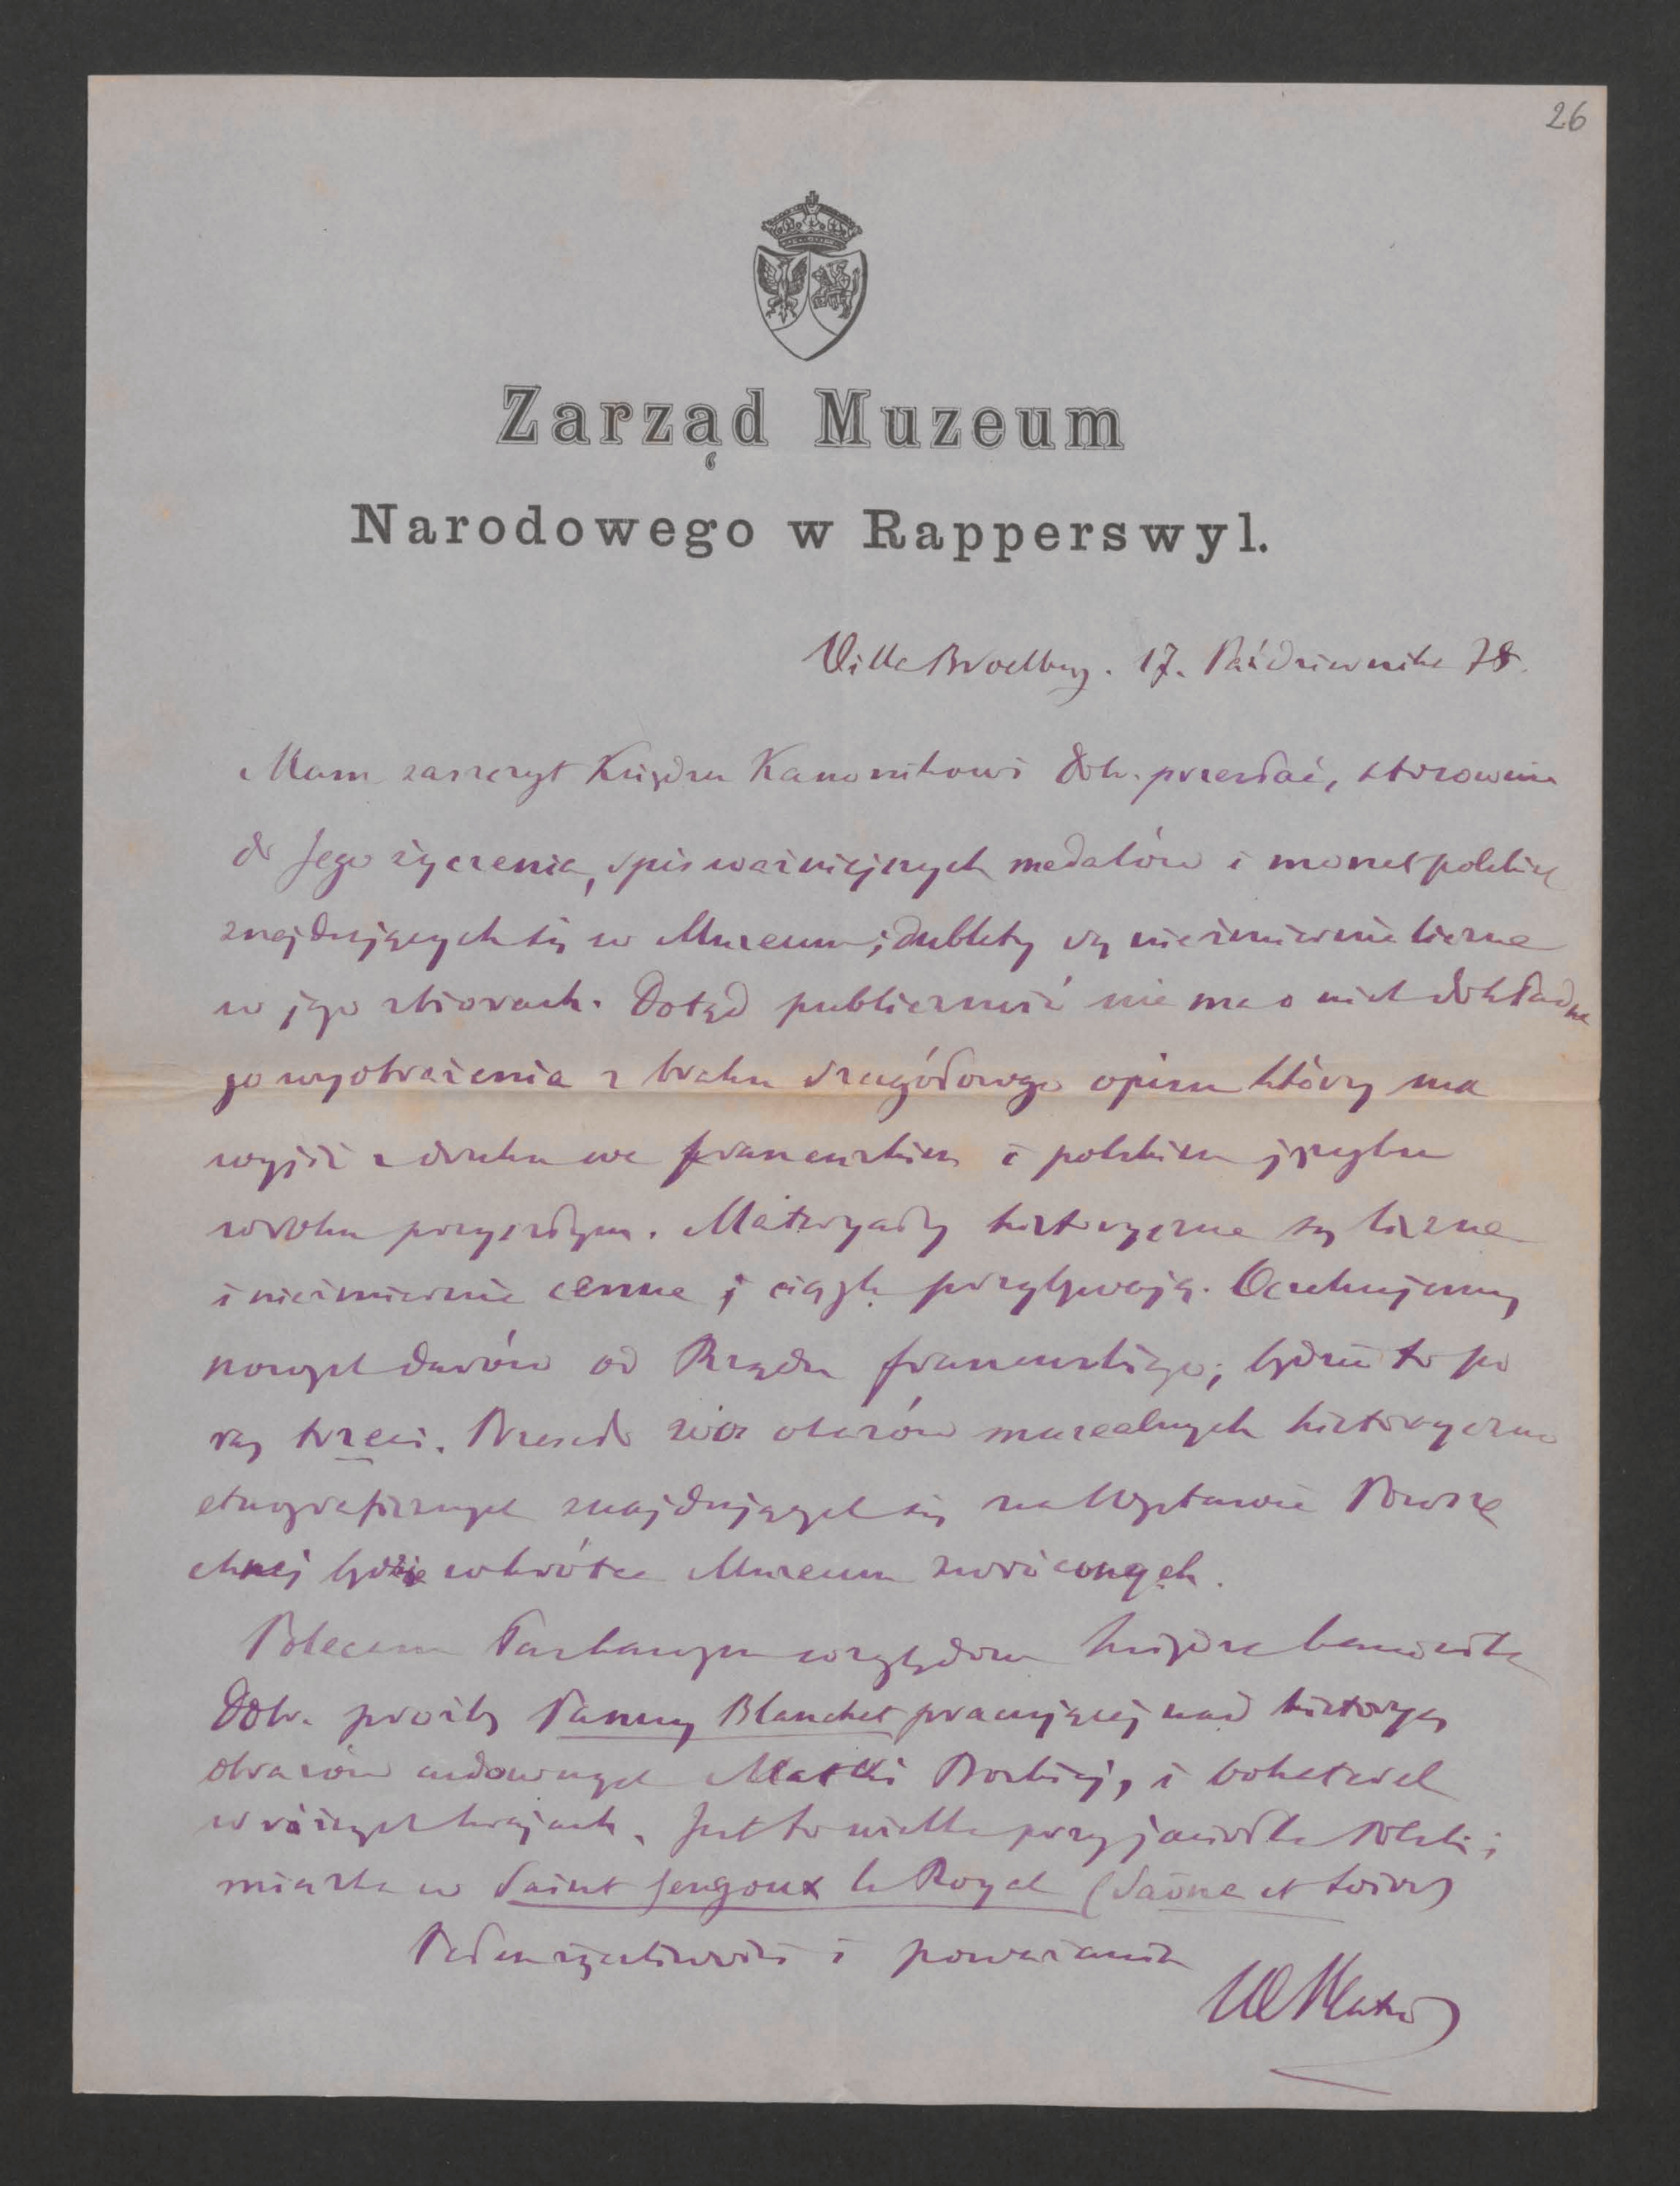 26
Zarząd Muzeum
Narodowego w Rapperswyl.
Villa Broelberg. 17. Października 78.
Mam zaszczyt Księdzu Kanonikowi Dob. przesłać, stosownie
do Jego życzenia, spis ważniejszych medalów i monet polskich
znajdujących się w Muzeum; dublety są niezmiernie liczne
w jego zbiorach. Dotąd publiczność nie ma o nich dokładne
go wyobrażenia z braku szczegółowego opisu który ma
wyjść z druku we francuskim i polskim języku
w roku przyszłym. Materyały historyczne są liczne
i niezmiernie cenne i ciągle przybywają. Oczekujemy
nowych darów od Rządu francuskiego; będzie to po
raz trzeci. Przeszło obrazów historyczno
etnograficznych znajdujących się na Wystawie Powsze
chnej będzie wkrótce Muzeum zwróconych.
Polecam łaskawym względom Księdza Kanonika
Dob. prośbę Panny Blanchet pracującej nad historyą
obrazów cudownych Matki Boskiej, i
w różnych krajach. Jest to wielka przyjaciółka Polski;
mieszka w Saint Gengoux le Royal (Saône et Loire)
Pełen życzliwości i poważania
WPlater